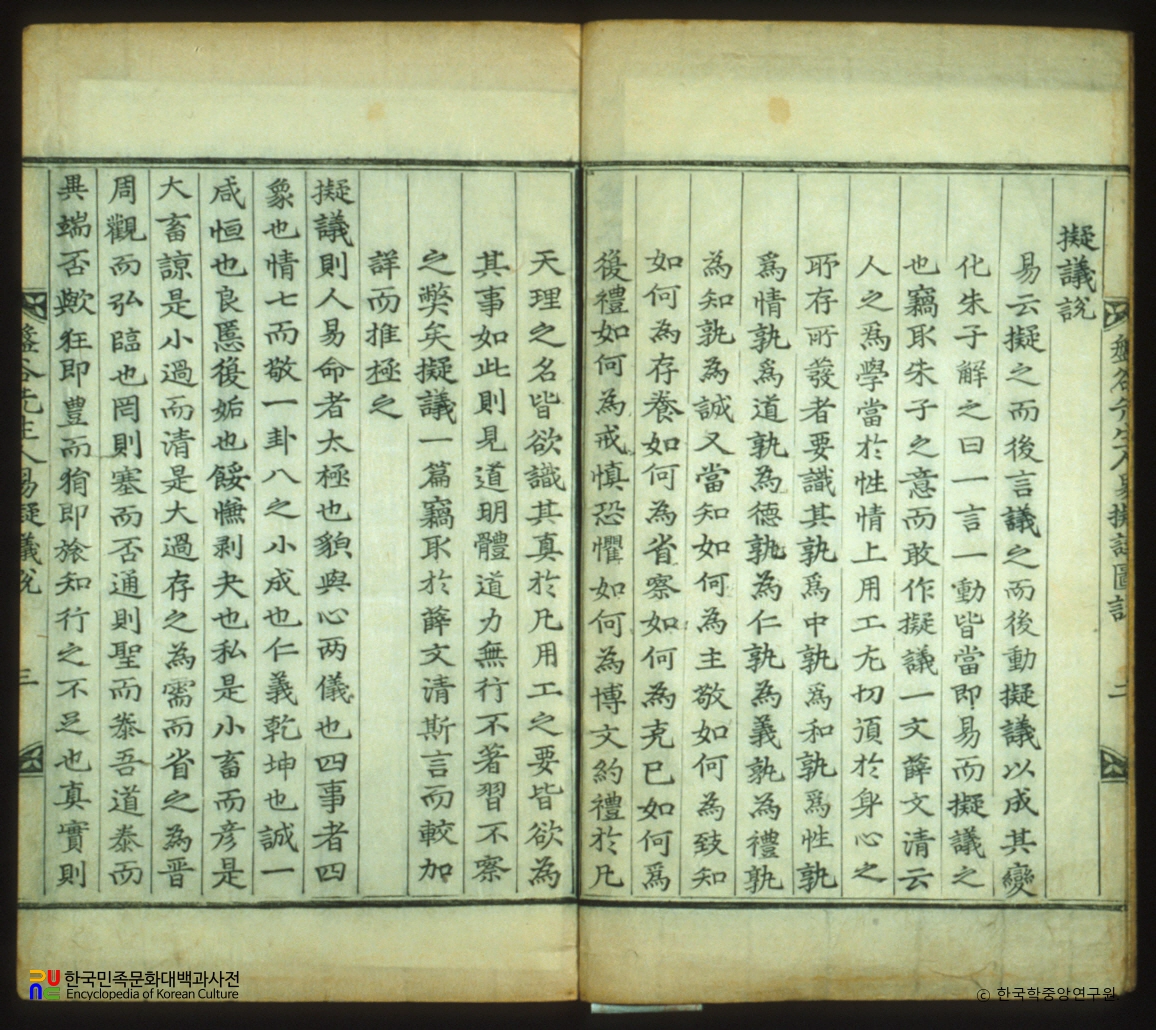 盤谷先生人易擬議圖說 二
擬議說
易云擬之而後言議之而後動擬議以成其變
化朱子解之曰一言一動皆當即易而擬議之
也竊取朱子之意而敢作擬議一文薛文清云
人之爲學當於性情上用工尤切須於身心之
所存所發者要識其孰爲中孰爲和孰爲性孰
爲情孰爲道孰為德孰為仁孰為義孰為禮孰
為知孰為誠又當知如何為主敬如何為致知
如何為存養如何為省察如何為克己如何爲
復禮如何為戒慎恐懼如何為博文約禮於凡
天理之名皆欲識其真於凡用工之要皆欲為
其事如此則見道明體道力無行不著習不察
之獘矣擬議一篇竊取於薛文清斯言而較加
詳而推極之
擬議則人易命者太極也貌與心两儀也四事者四
象也情七而敬一卦八之小成也仁義乾坤也誠一
咸恒也良慝復姤也餒憮剥夬也私是小畜而彦是
大畜諒是小過而清是大過存之為需而省之為晋
周觀而弘臨也罔則塞而否通則聖而泰吾道泰而
異端否歟狂即豊而狷即旅知行之不足也真實則
盤谷先生人易擬議說 三
한국민족문화대백과사전
Encyclopedia of Korean Culture
© 한국학중앙연구원